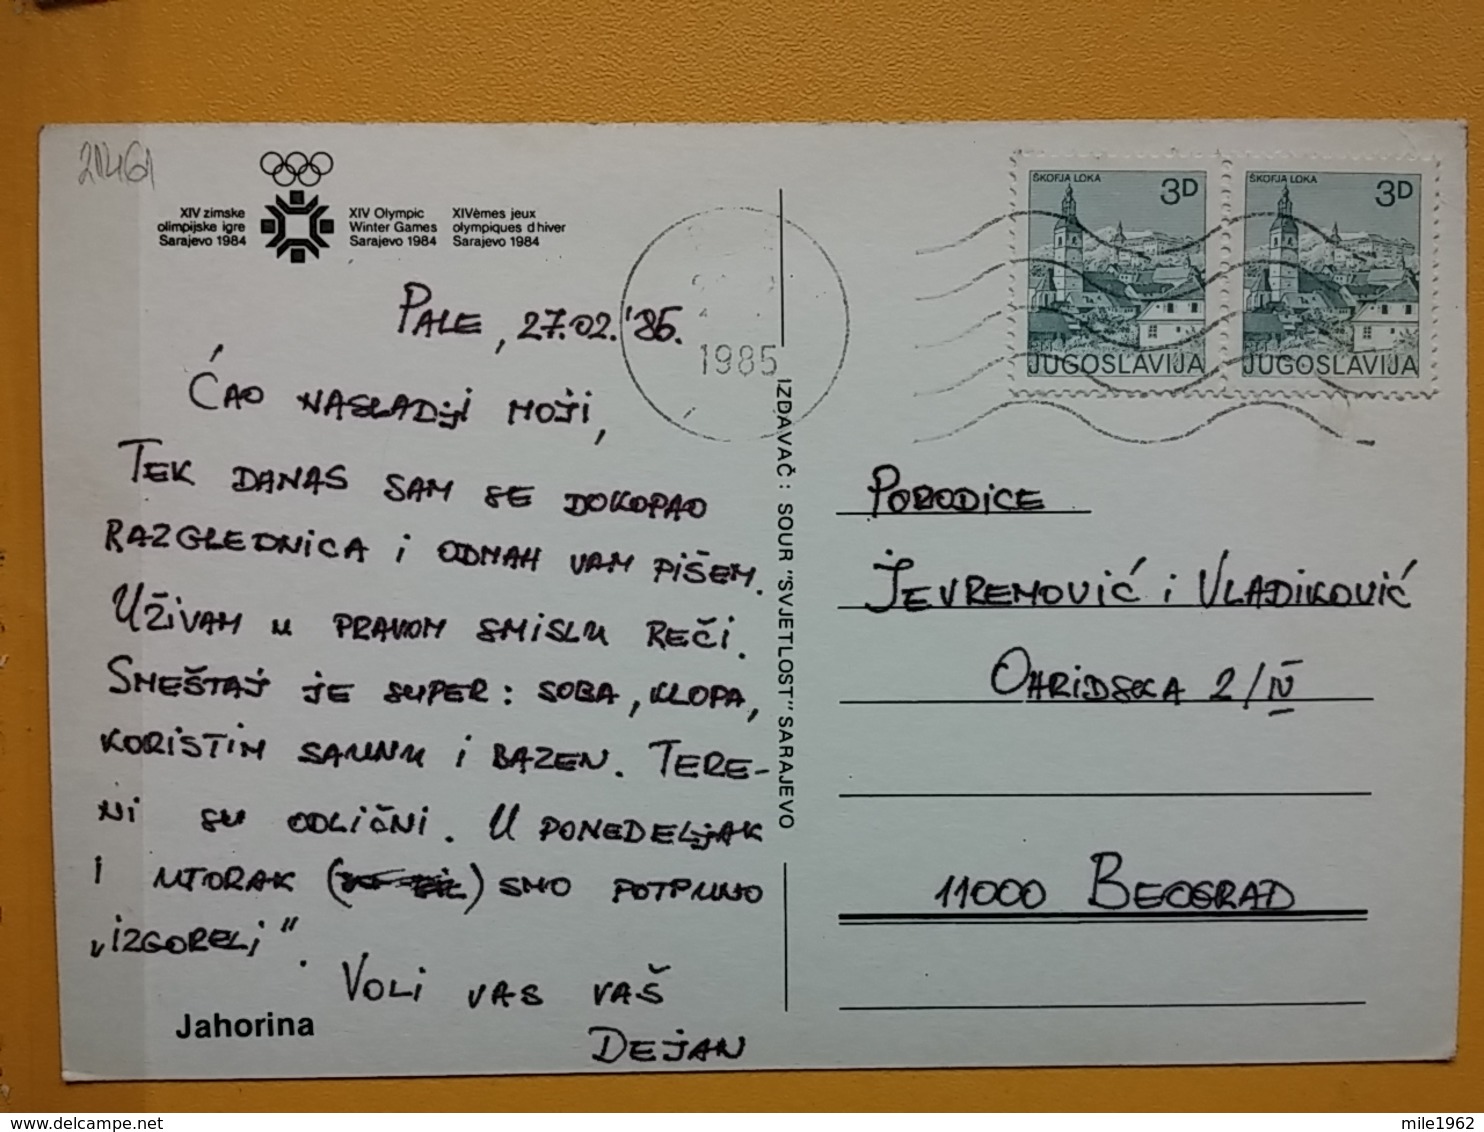 21461
XIV zimske
olimpijske igre
Sarajevo 1984
XIV Olympic
Winter Games
Sarajevo 1984
XIVèmes jeux
olympiques d'hiver
Sarajevo 1984
PALE, 27.02.'85.
ĆAO NASLADJI MOJI,
TEK DANAS SAM SE DOKOPAO
RAZGLEDNICA I ODMAH VAM PIŠEM.
UŽIVAM U PRAVOM SMISLU REČI.
SMEŠTAJ JE SUPER: SOBA, KLOPA,
KORISTIM SAUNU I BAZEN. TERE-
NI SU ODLIČNI. U PONEDELJAK
I UTORAK () SMO POTPUNO
„IZGORELI".
VOLI VAS VAŠ
DEJAN
Jahorina
1985
IZDAVAČ: SOUR "SVJETLOST" SARAJEVO
ŠKOFJA LOKA
3D
JUGOSLAVIJA
ŠKOFJA LOKA
3D
JUGOSLAVIJA
PORODICE
JEVREMOVIĆ I VLADIKOVIĆ
OHRIDSKA 2/IV
11000 BEOGRAD
mile1962